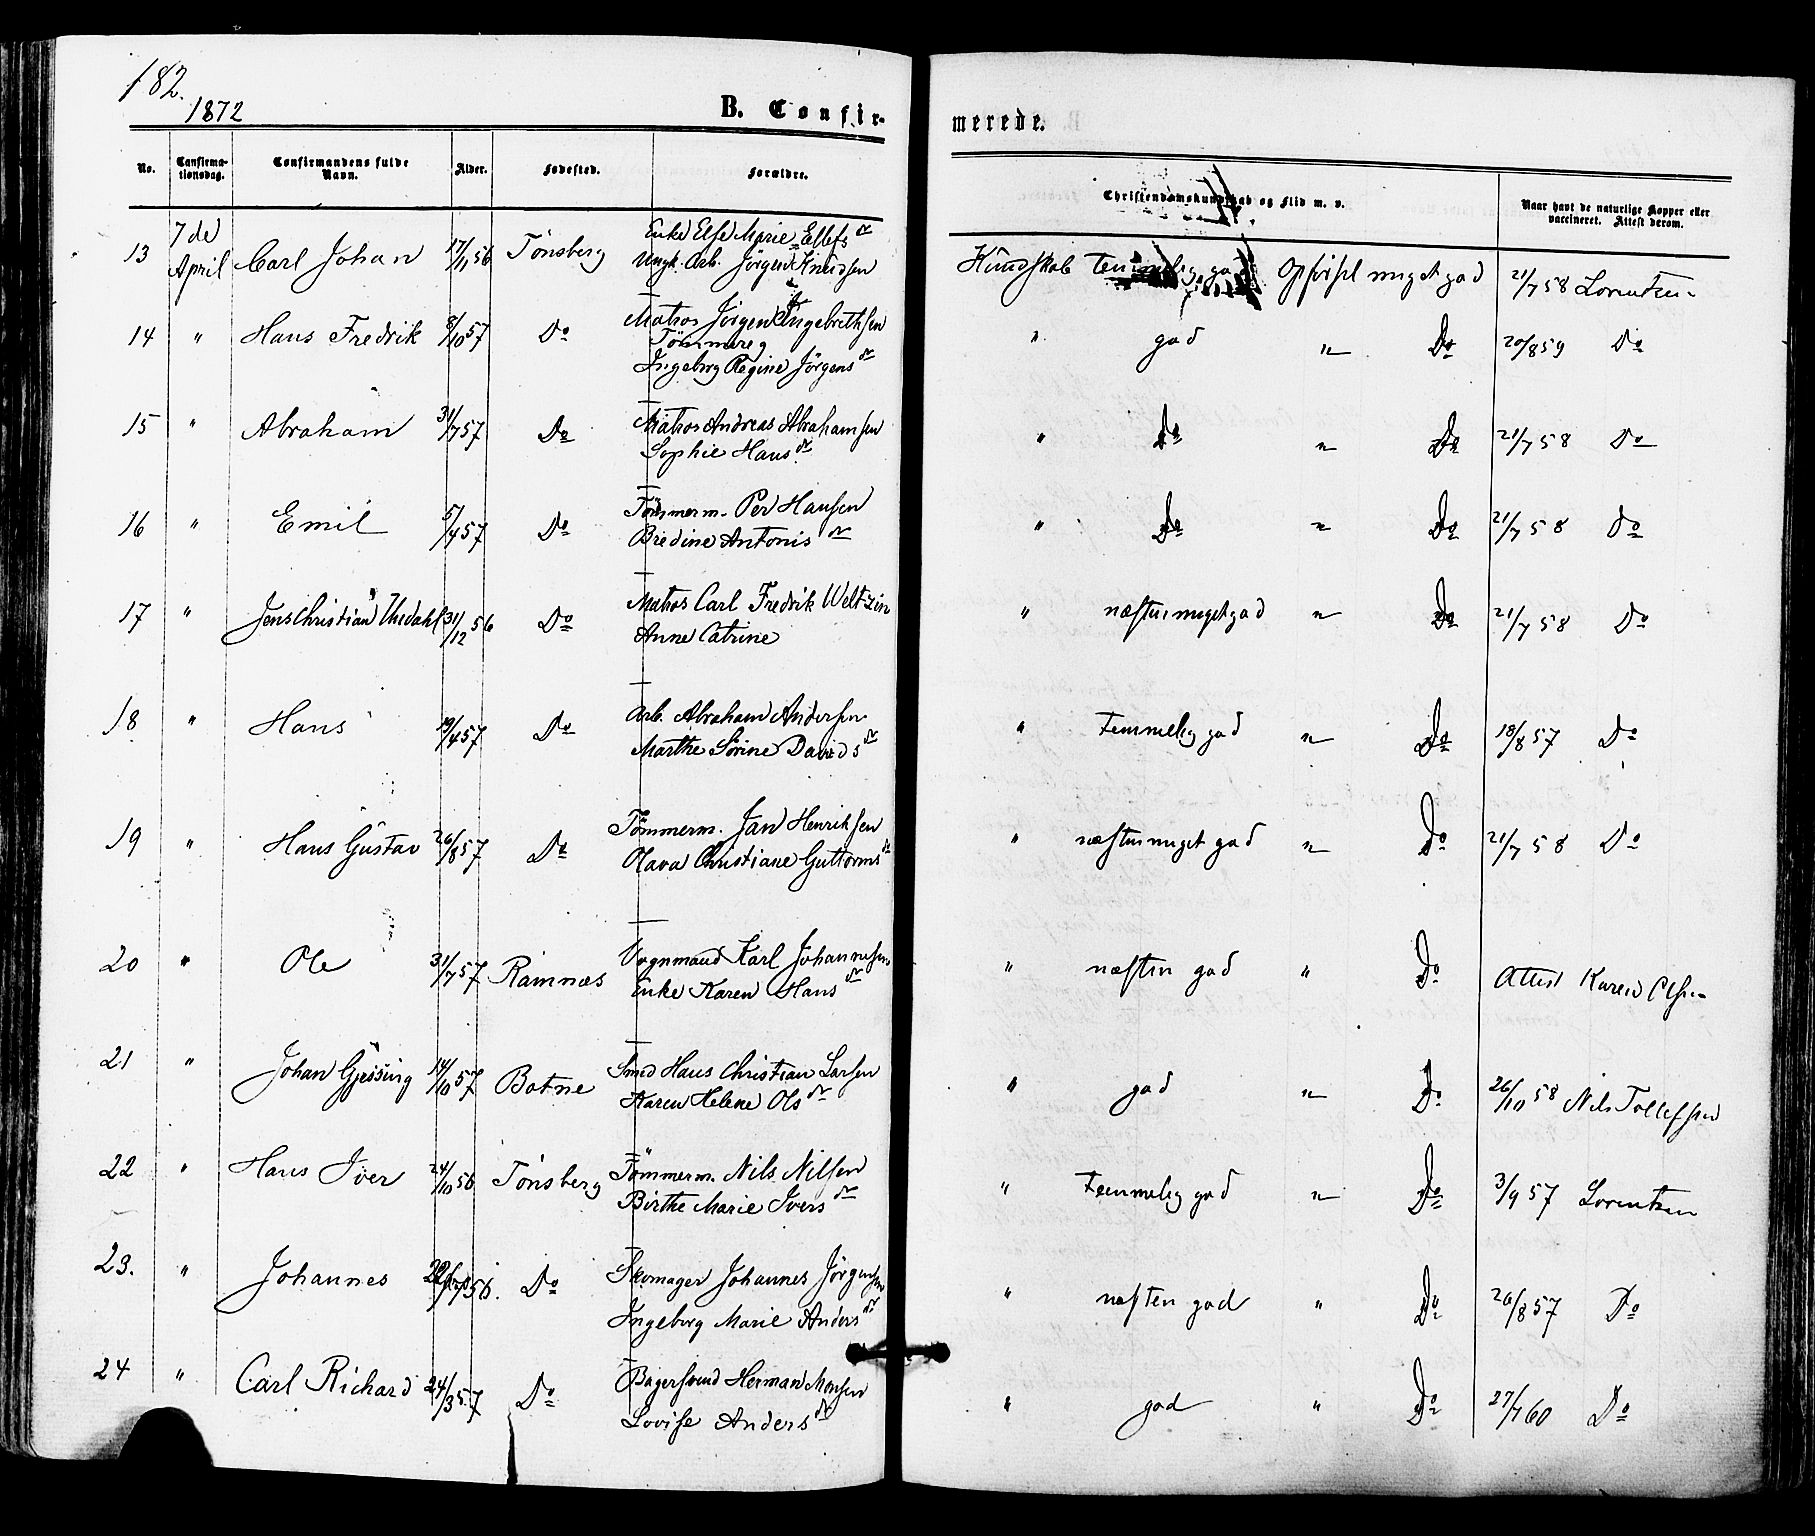 182.
1872
B. Confir-
merede.
No. Confirma-tionsdag. Confirmandens fulde Navn. Alder. Fødested. Forældre. Christendomskundskab og Flid m. v. Naar havt de naturlige Kopper eller vaccineret. Attest derom.
7de Enke Else Marie Ellefs dr
13 April Carl Johan 17/11 56 Tönsberg Ungk. Arb. Jörgen Knudsen Kundskab Temmelig god Opförsel meget god 21/7 58 Lorentzen
Matros Jörgen Ingebrethsen
14 " Hans Fredrik 8/10 57 Do Tömmereg " god " Do 20/8 59 Do
Ingeborg Regine Jörgens dr
15 " Abraham 31/7 57 Do Matros Andreas Abrahamsen " Do " Do 21/7 58 Do
Sophie Hans dr
16 " Emil 5/4 57 Do Tömmerm. Per Hansen " Do " Do 21/7 58 Do
Bredine Antonis dr
17 " Jens Christian Thedahl 31/12 56 Do Matros Carl Fredrik Weltzin " næsten meget god " Do 21/7 58 Do
Anne Catrine
18 " Hans 19/4 57 Do Arb. Abraham Andersen " Temmelig god " Do 18/8 57 Do
Marthe Sörine Davids dr
19 " Hans Gustav 26/8 57 Do Tömmerm. Jan Henriksen " næsten meget god " Do 21/7 58 Do
Olava Christiane Guttorms dr
20 " Ole 31/7 57 Ramnæs Vognmand Karl Johannesen " næsten god " Do Attest Karen Olsen
Enke Karen Hans dr
21 " Johan Gjessing 14/10 57 Botne Smed Hans Christian Larsen " god " Do 26/10 58 Nils Tollefsen
Karen Helene Ols dr
22 " Hans Iver 24/10 56 Tönsberg Tömmerm. Nils Nilsen " Temmelig god " Do 3/9 57 Lorentzen
Birthe Marie Ivers dr
23. " Johannes 56. Do Skomager Johannes Jörgensen " næsten god " Do 26/8 57 Do
Ingeborg Marie Anders dr
24 " Carl Richard 24/3 57 Do Bagersvend Herman Monsen " god " Do 27/7 60 Do
Lovise Anders dr